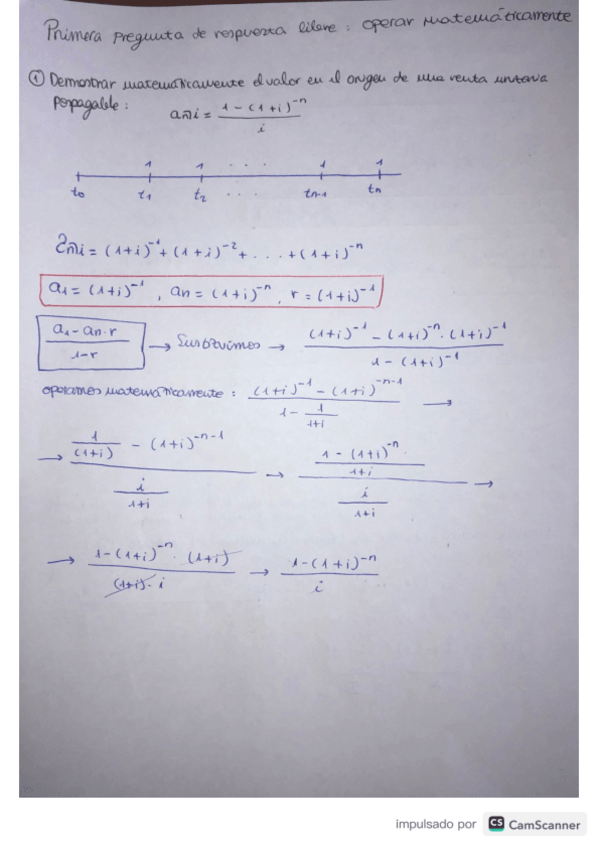 Primera pregunta de respuesta libre: operar matemáticamente
① Demostrar matemáticamente el valor en el origen de una renta unitaria
pospagable: an̅|i = 1-(1+i)^-n / i
1 1 ... 1 1
t0 t1 t2 ... tn-1 tn
an̅|i = (1+i)^-1 + (1+i)^-2 + ... + (1+i)^-n
a1 = (1+i)^-1, an = (1+i)^-n, r = (1+i)^-1
a1 - an·r / 1-r → Sustituimos → (1+i)^-1 - (1+i)^-n · (1+i)^-1 / 1-(1+i)^-1
operamos matemáticamente: (1+i)^-1 - (1+i)^-n-1 / 1 - 1/1+i →
→ 1/(1+i) - (1+i)^-n-1 / i/1+i → 1-(1+i)^-n / 1+i / i/1+i →
→ 1-(1+i)^-n · (1+i) / (1+i)·i → 1-(1+i)^-n / i
impulsado por CS CamScanner